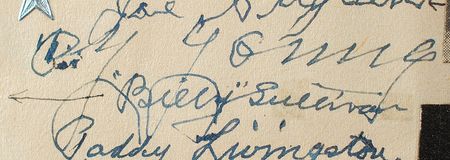 Cy Young
"Billy" Sullivan
Paddy Livingston